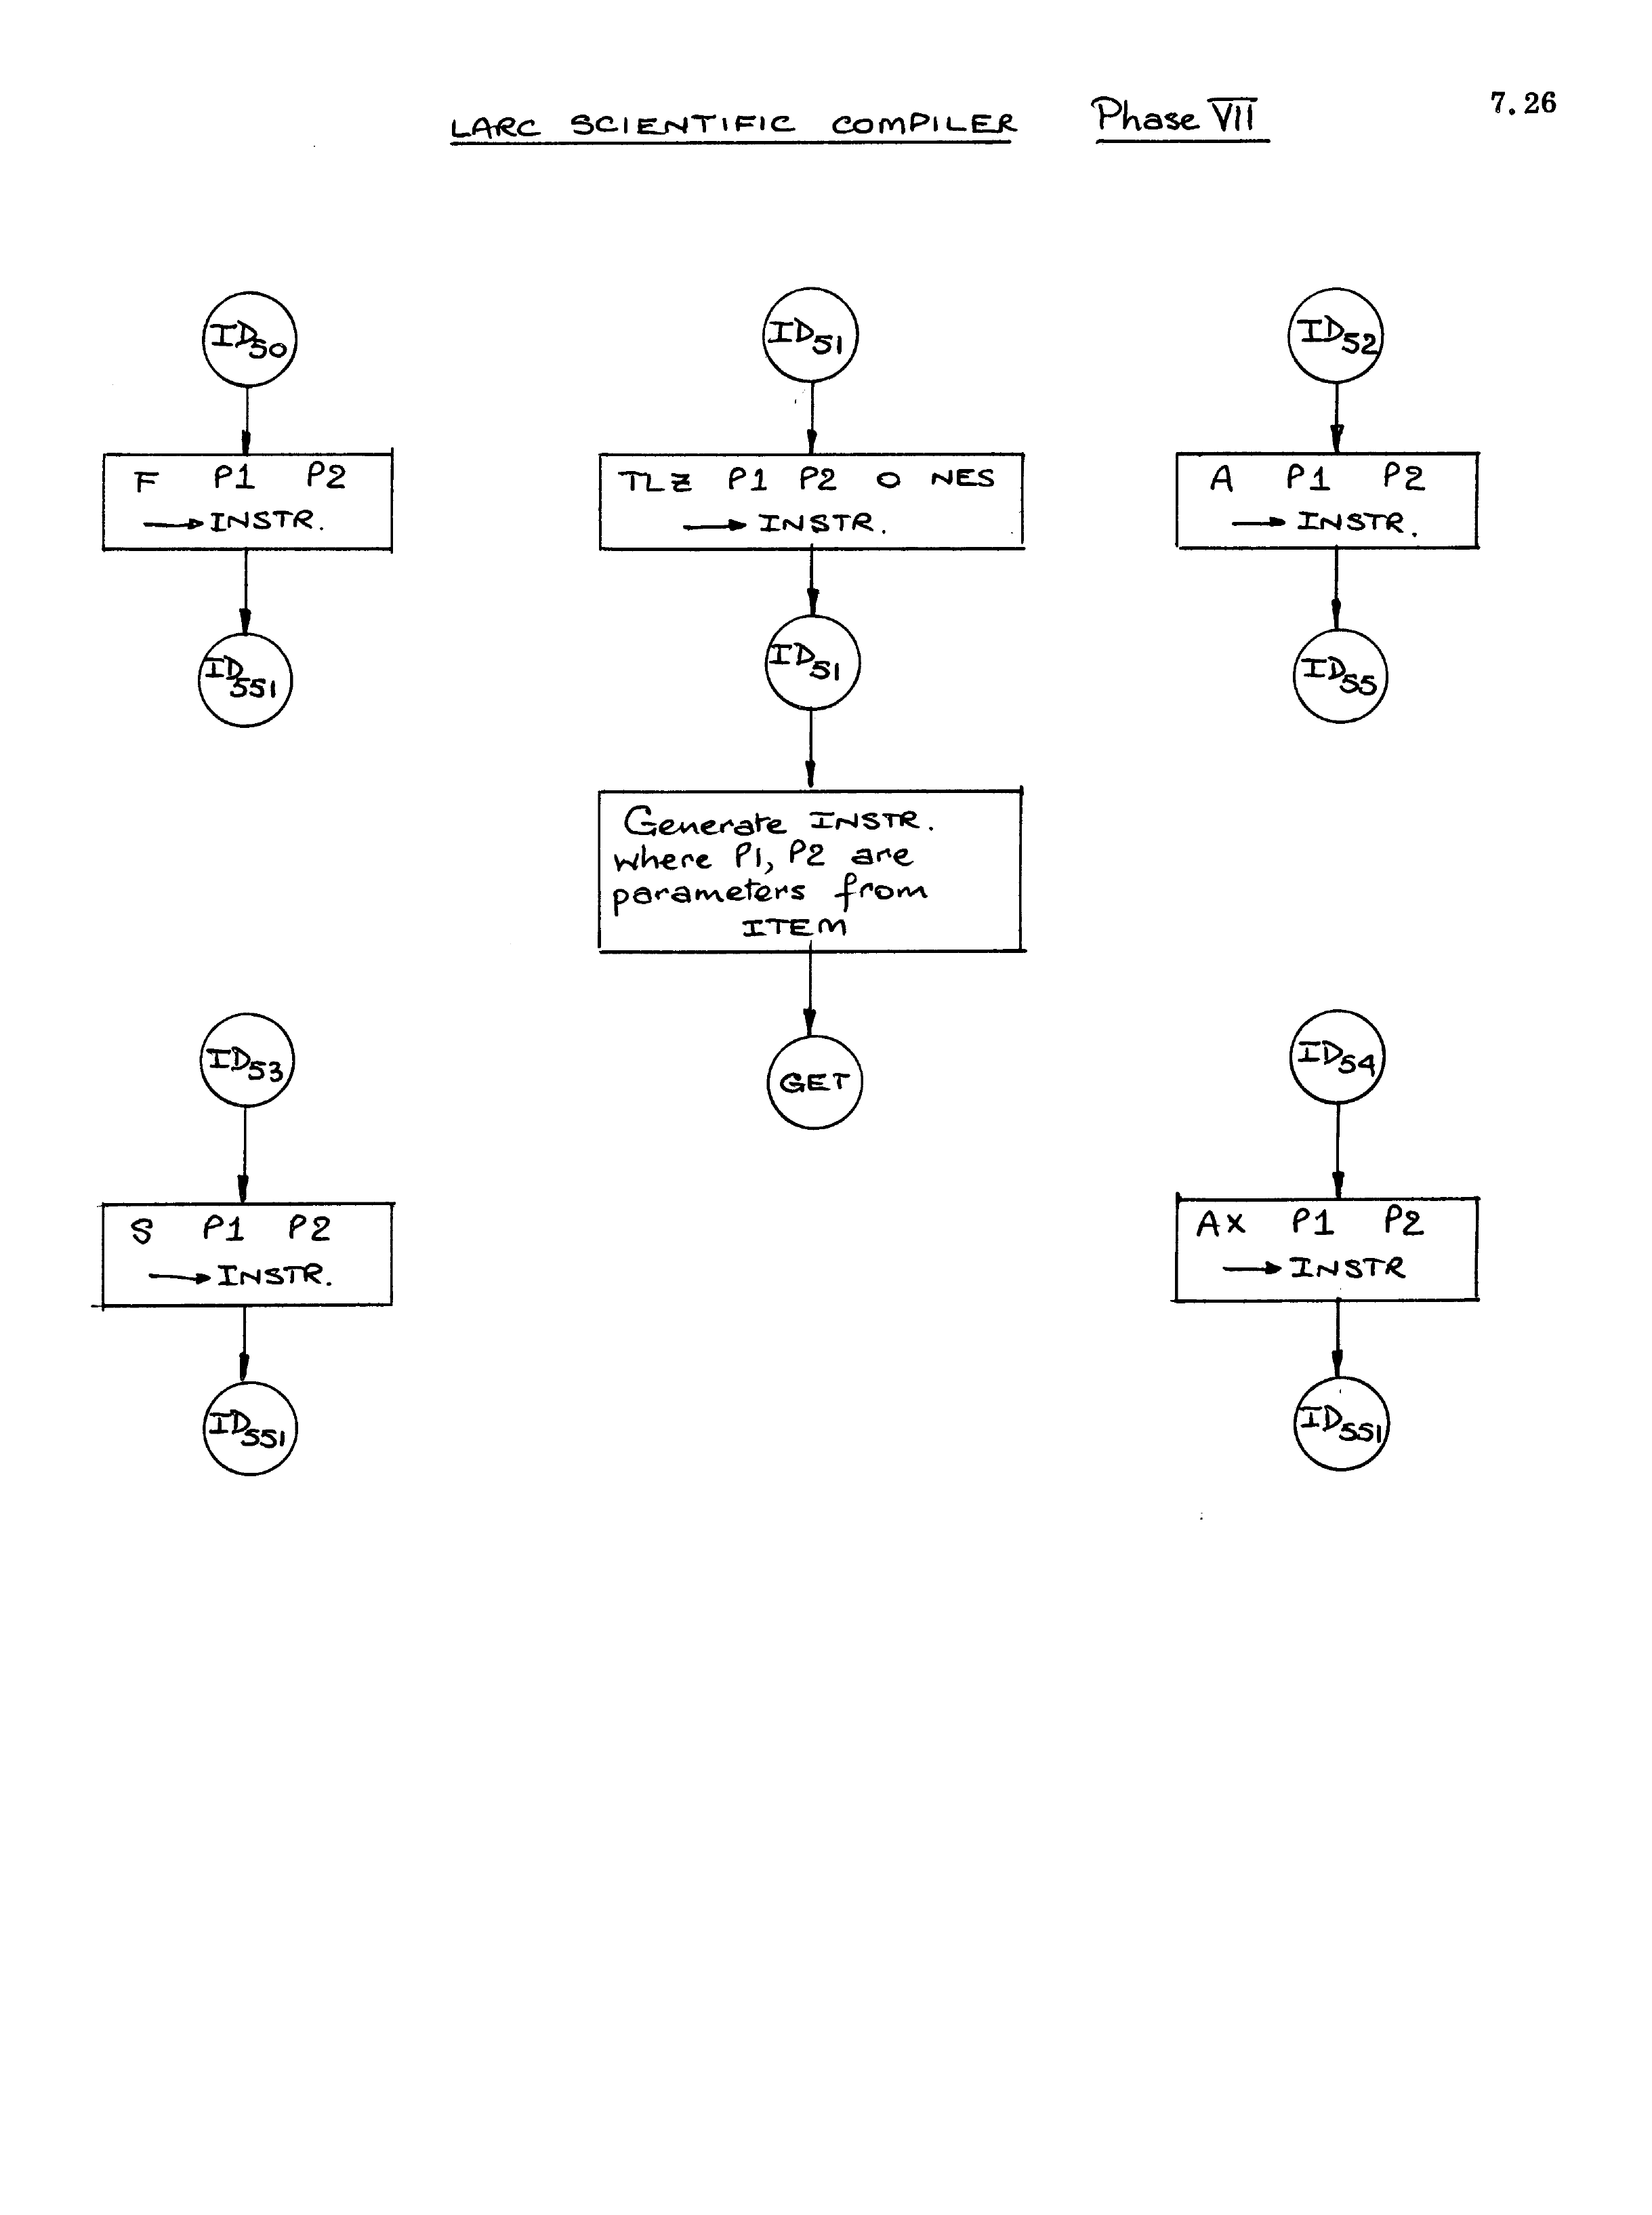 LARC SCIENTIFIC COMPILER Phase VII 7.26
ID50
F P1 P2
→ INSTR.
ID551
ID51
TLZ P1 P2 0 NES
→ INSTR.
ID51
Generate INSTR.
where P1, P2 are
parameters from
ITEM
GET
ID52
A P1 P2
→ INSTR.
ID55
ID53
S P1 P2
→ INSTR.
ID551
ID54
AX P1 P2
→ INSTR
ID551